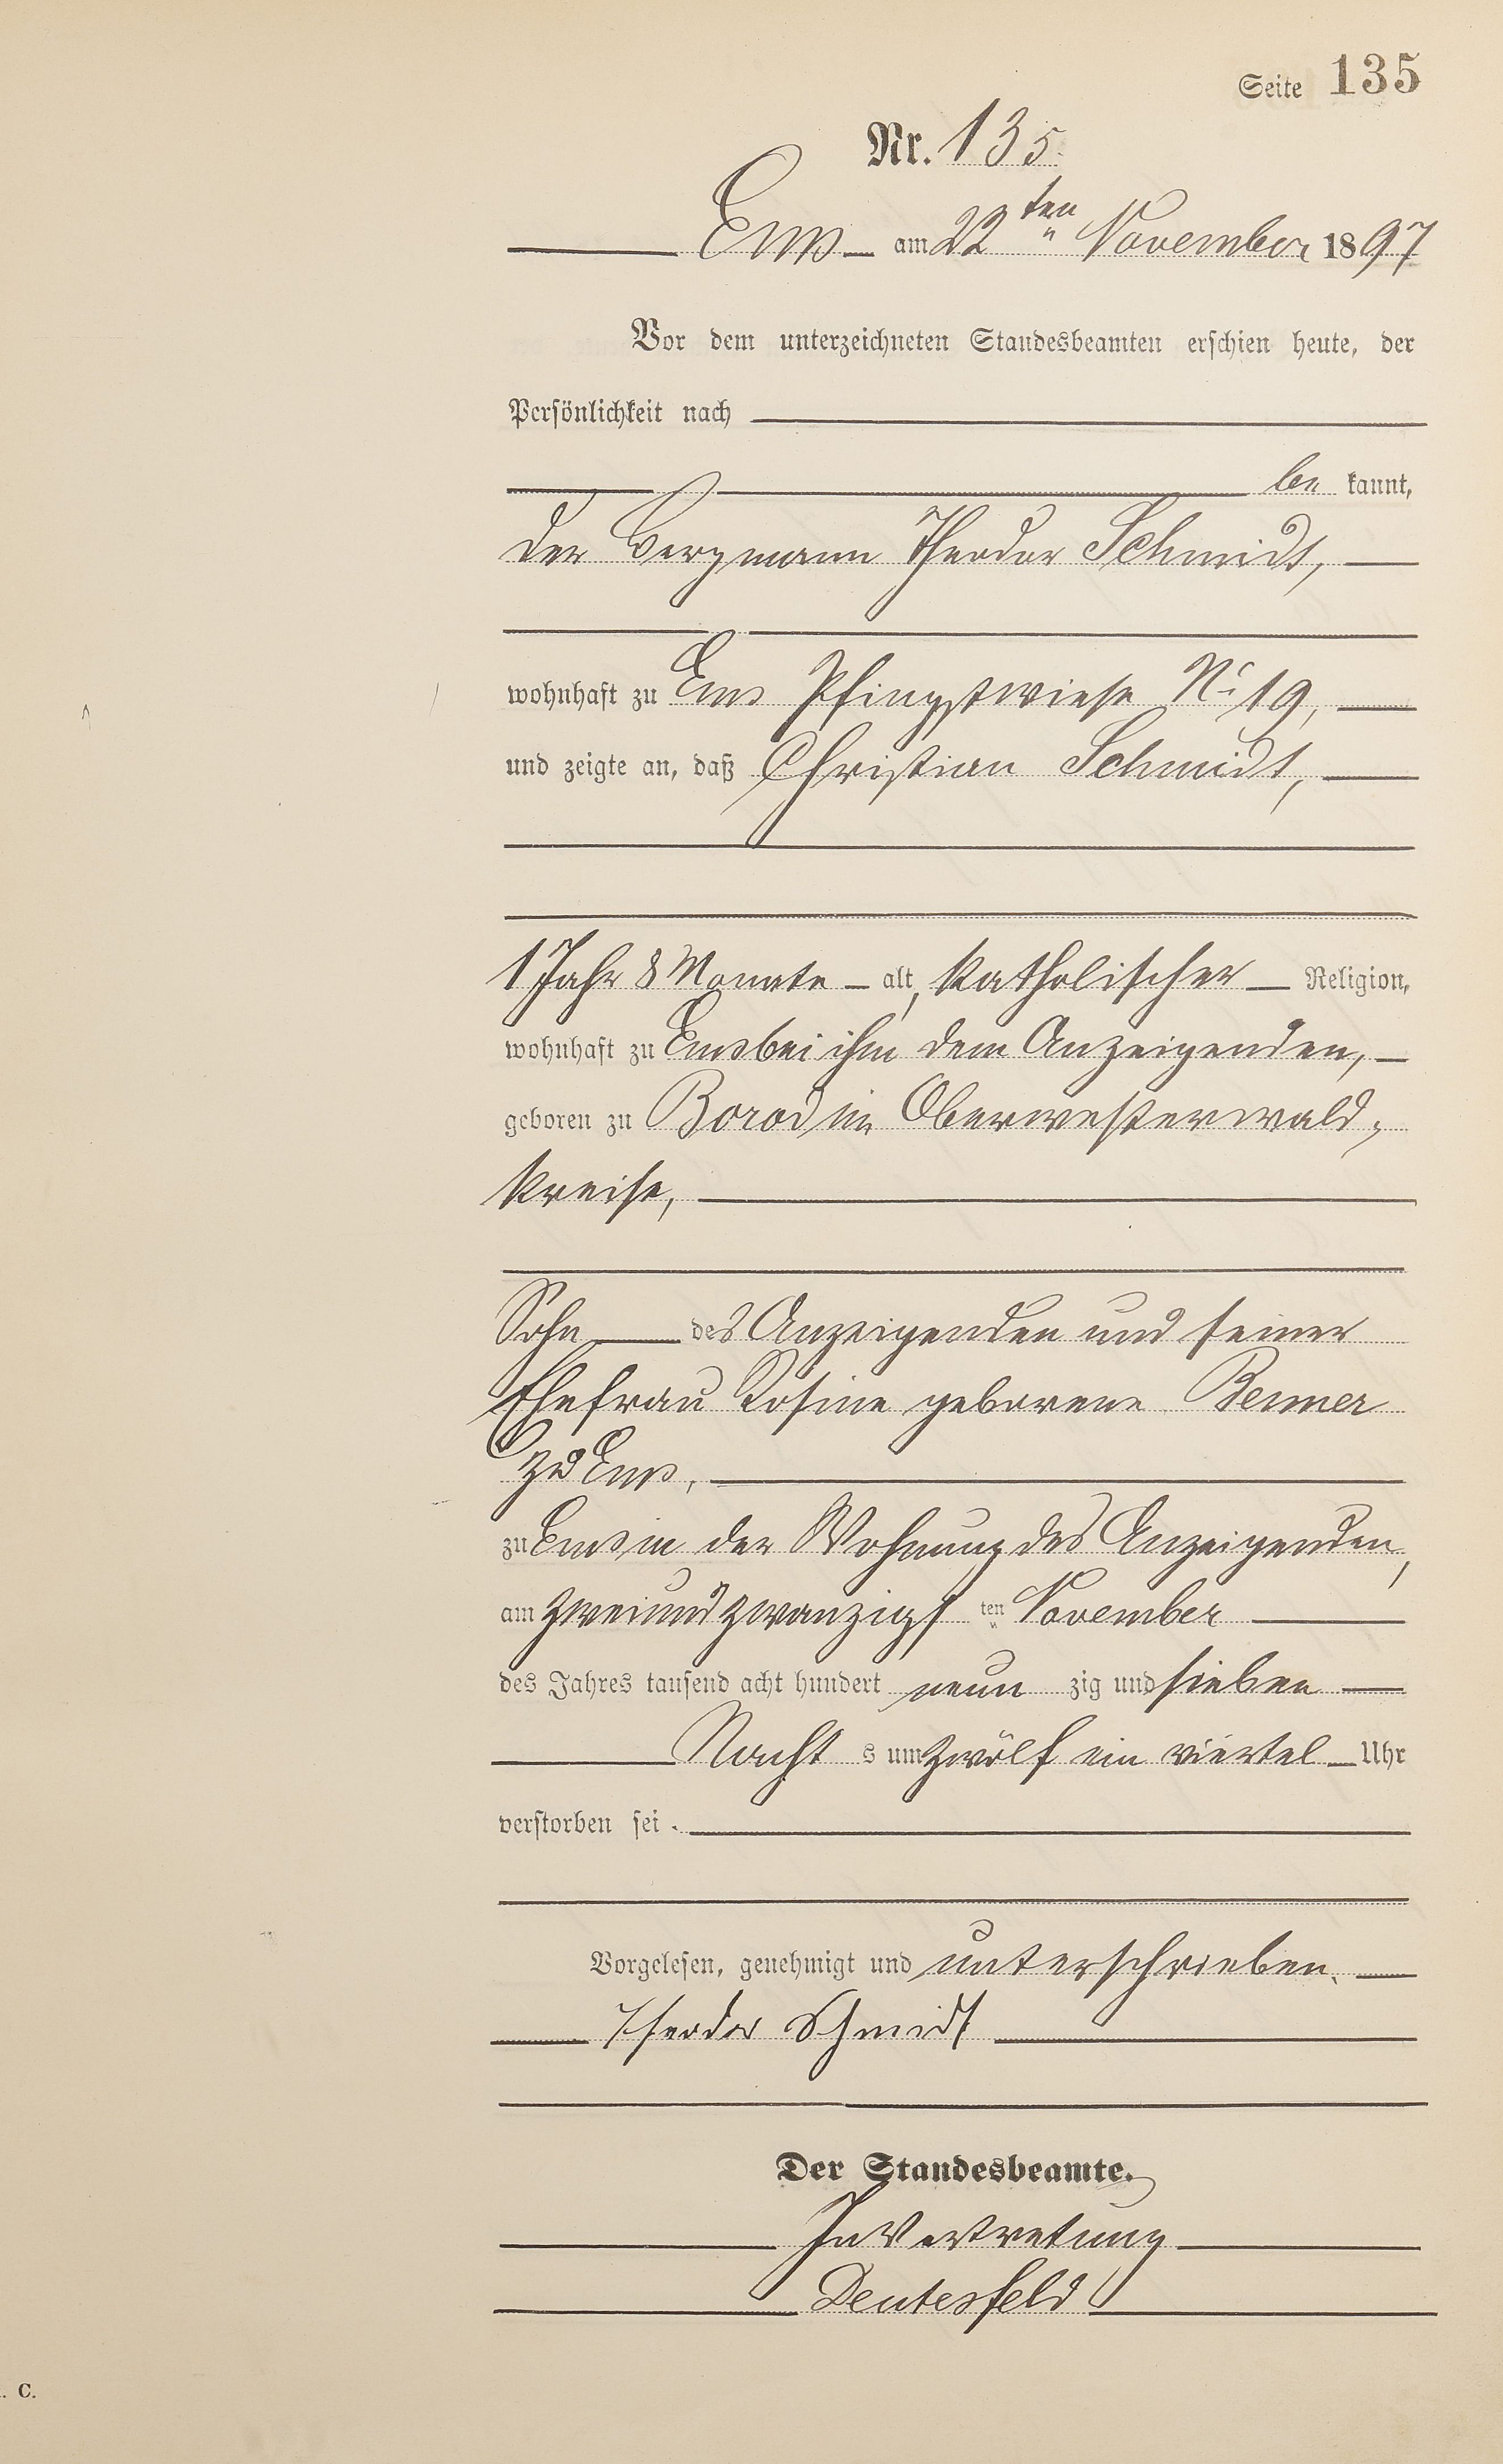 Seite 135
Nr. 135.
Ems am 22ten November 1897
Vor dem unterzeichneten Standesbeamten erschien heute, der
Persönlichkeit nach
be kannt,
der Bergmann Theodor Schmidt,
wohnhaft zu Ems Pfingstwiese No 19,
und zeigte an, daß Christian Schmidt,
1 Jahr 8 Monate alt, katholischer Religion,
wohnhaft zu Ems bei ihm dem Anzeigenden,
geboren zu Borod im Oberwesterwald-
kreise,
Sohn des Anzeigenden und seiner
Ehefrau Rosine geborene Benner
zu Ems,
zu Ems in der Wohnung des Anzeigenden,
am zweiundzwanzigs ten November
des Jahres tausend acht hundert neun zig und sieben
Nacht s um zwölf ein viertel Uhr
verstorben sei.
Vorgelesen, genehmigt und unterschrieben.
Theodor Schmidt
Der Standesbeamte.
In Vertretung
Deutesfeld
. C.